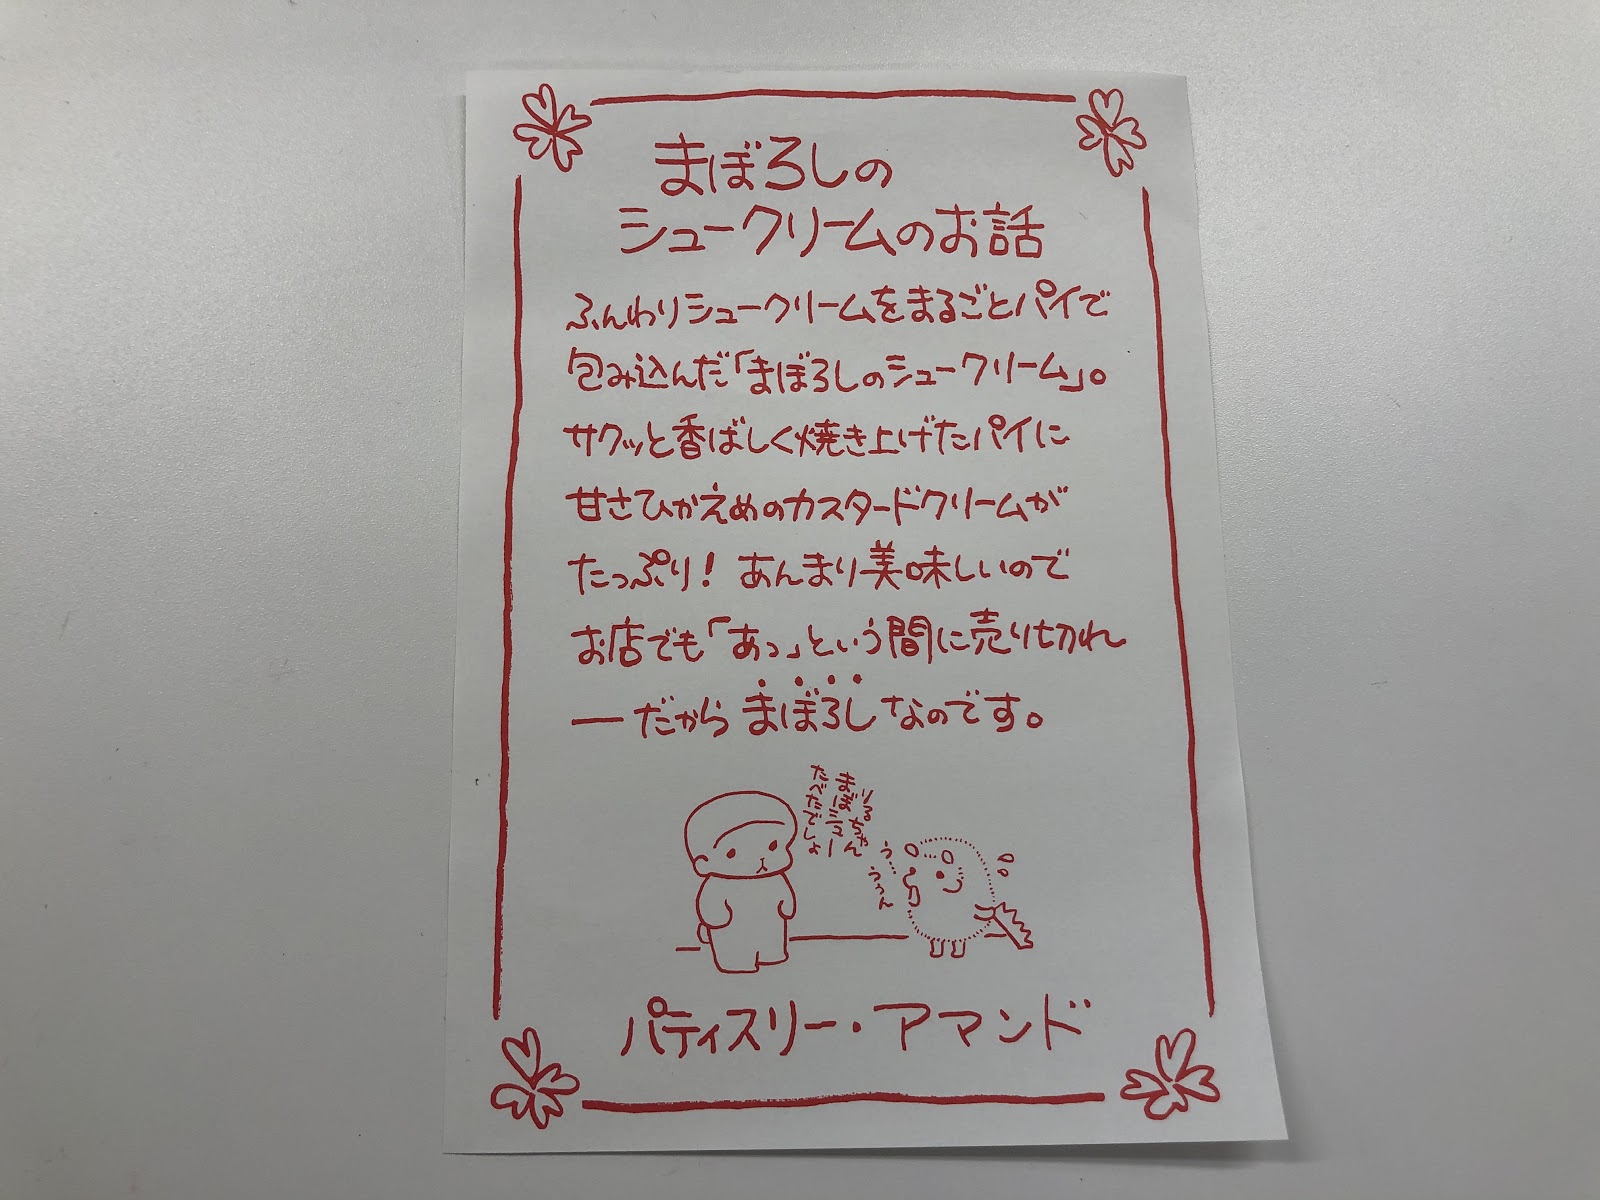 まぼろしの
シュークリームのお話
ふんわりシュークリームをまるごとパイで
包み込んだ「まぼろしのシュークリーム」。
サクッと香ばしく焼き上げたパイに
甘さひかえめのカスタードクリームが
たっぷり！ あんまり美味しいので
お店でも「あっ」という間に売り切れ
―だから まぼろし なのです。
う…
ううん
パティスリー・アマンド